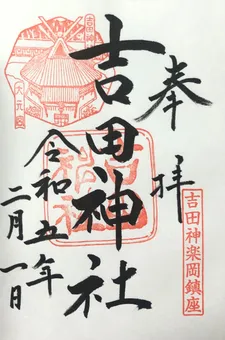 奉拝
吉田神楽岡鎮座
吉田神社
令和五年
二月一日
吉田神社
大元宮